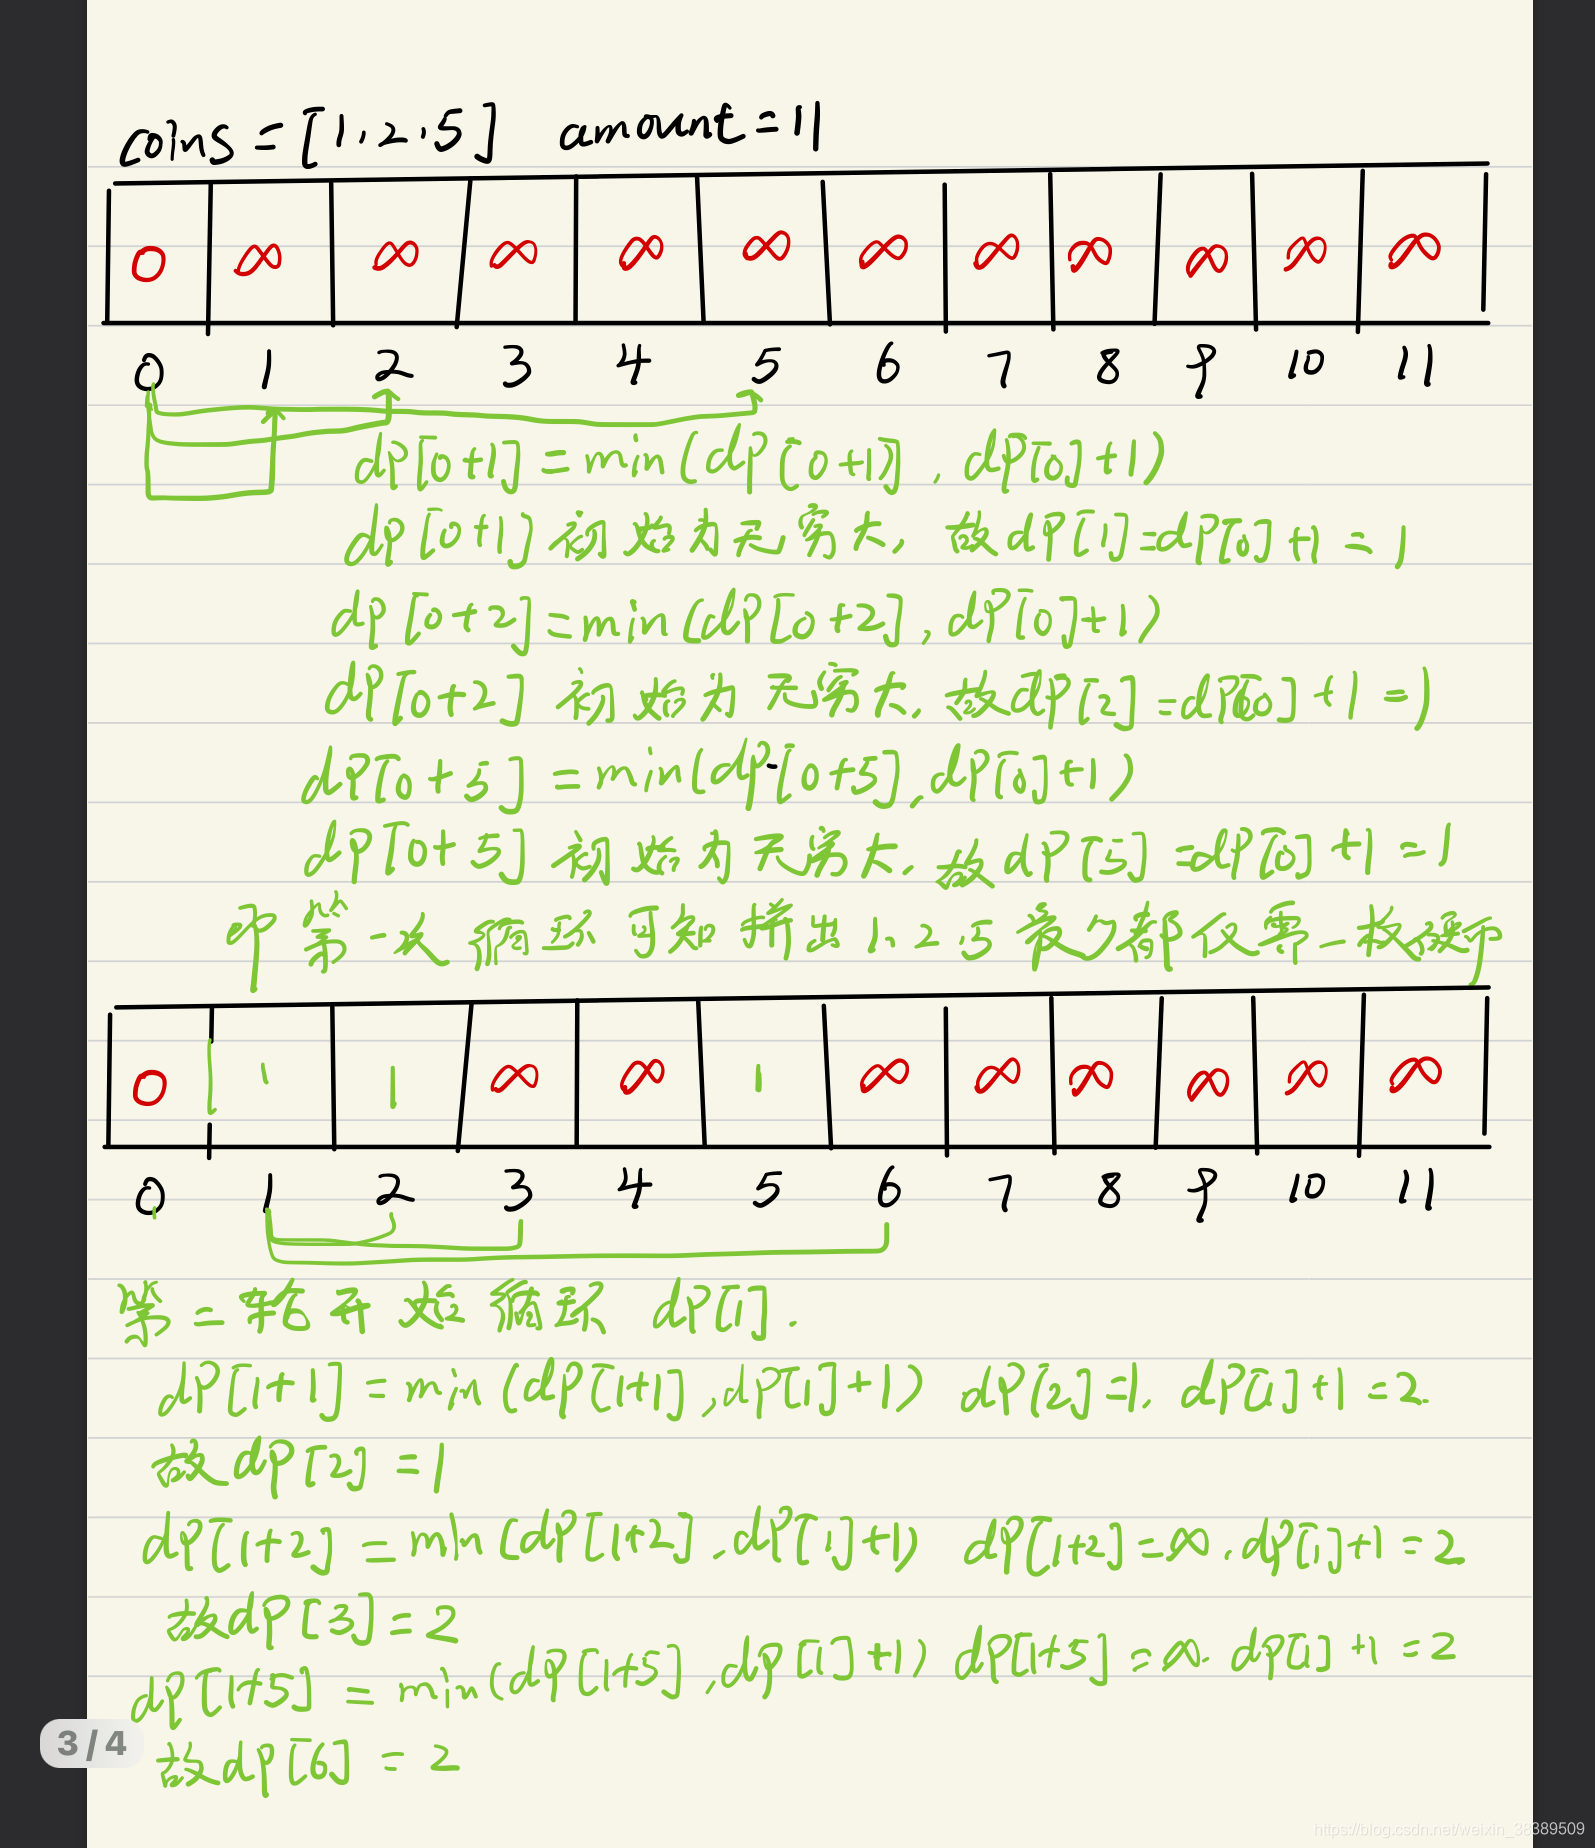 coins = [1,2,5] amount = 11
0 ∞ ∞ ∞ ∞ ∞ ∞ ∞ ∞ ∞ ∞ ∞
0 1 2 3 4 5 6 7 8 9 10 11
dp[0+1] = min(dp[0+1], dp[0]+1)
dp[0+1]初始为无穷大, 故dp[1]=dp[0]+1=1
dp[0+2]=min(dp[0+2], dp[0]+1)
dp[0+2] 初始为无穷大, 故dp[2]=dp[0]+1=1
dp[0+5] = min(dp[0+5], dp[0]+1)
dp[0+5] 初始为无穷大, 故dp[5]=dp[0]+1=1
即第一次循环可知拼出1.2.5最少都仅需一枚硬币
0 1 1 ∞ ∞ 1 ∞ ∞ ∞ ∞ ∞ ∞
0 1 2 3 4 5 6 7 8 9 10 11
第二轮开始循环 dp[1].
dp[1+1] = min(dp[1+1], dp[1]+1) dp[2]=1, dp[1]+1=2.
故dp[2]=1
dp[1+2] = min(dp[1+2], dp[1]+1) dp[1+2]=∞, dp[1]+1=2
故dp[3]=2
dp[1+5] = min(dp[1+5], dp[1]+1) dp[1+5]=∞. dp[1]+1=2
故dp[6]=2
3/4
https://blog.csdn.net/weixin_38389509